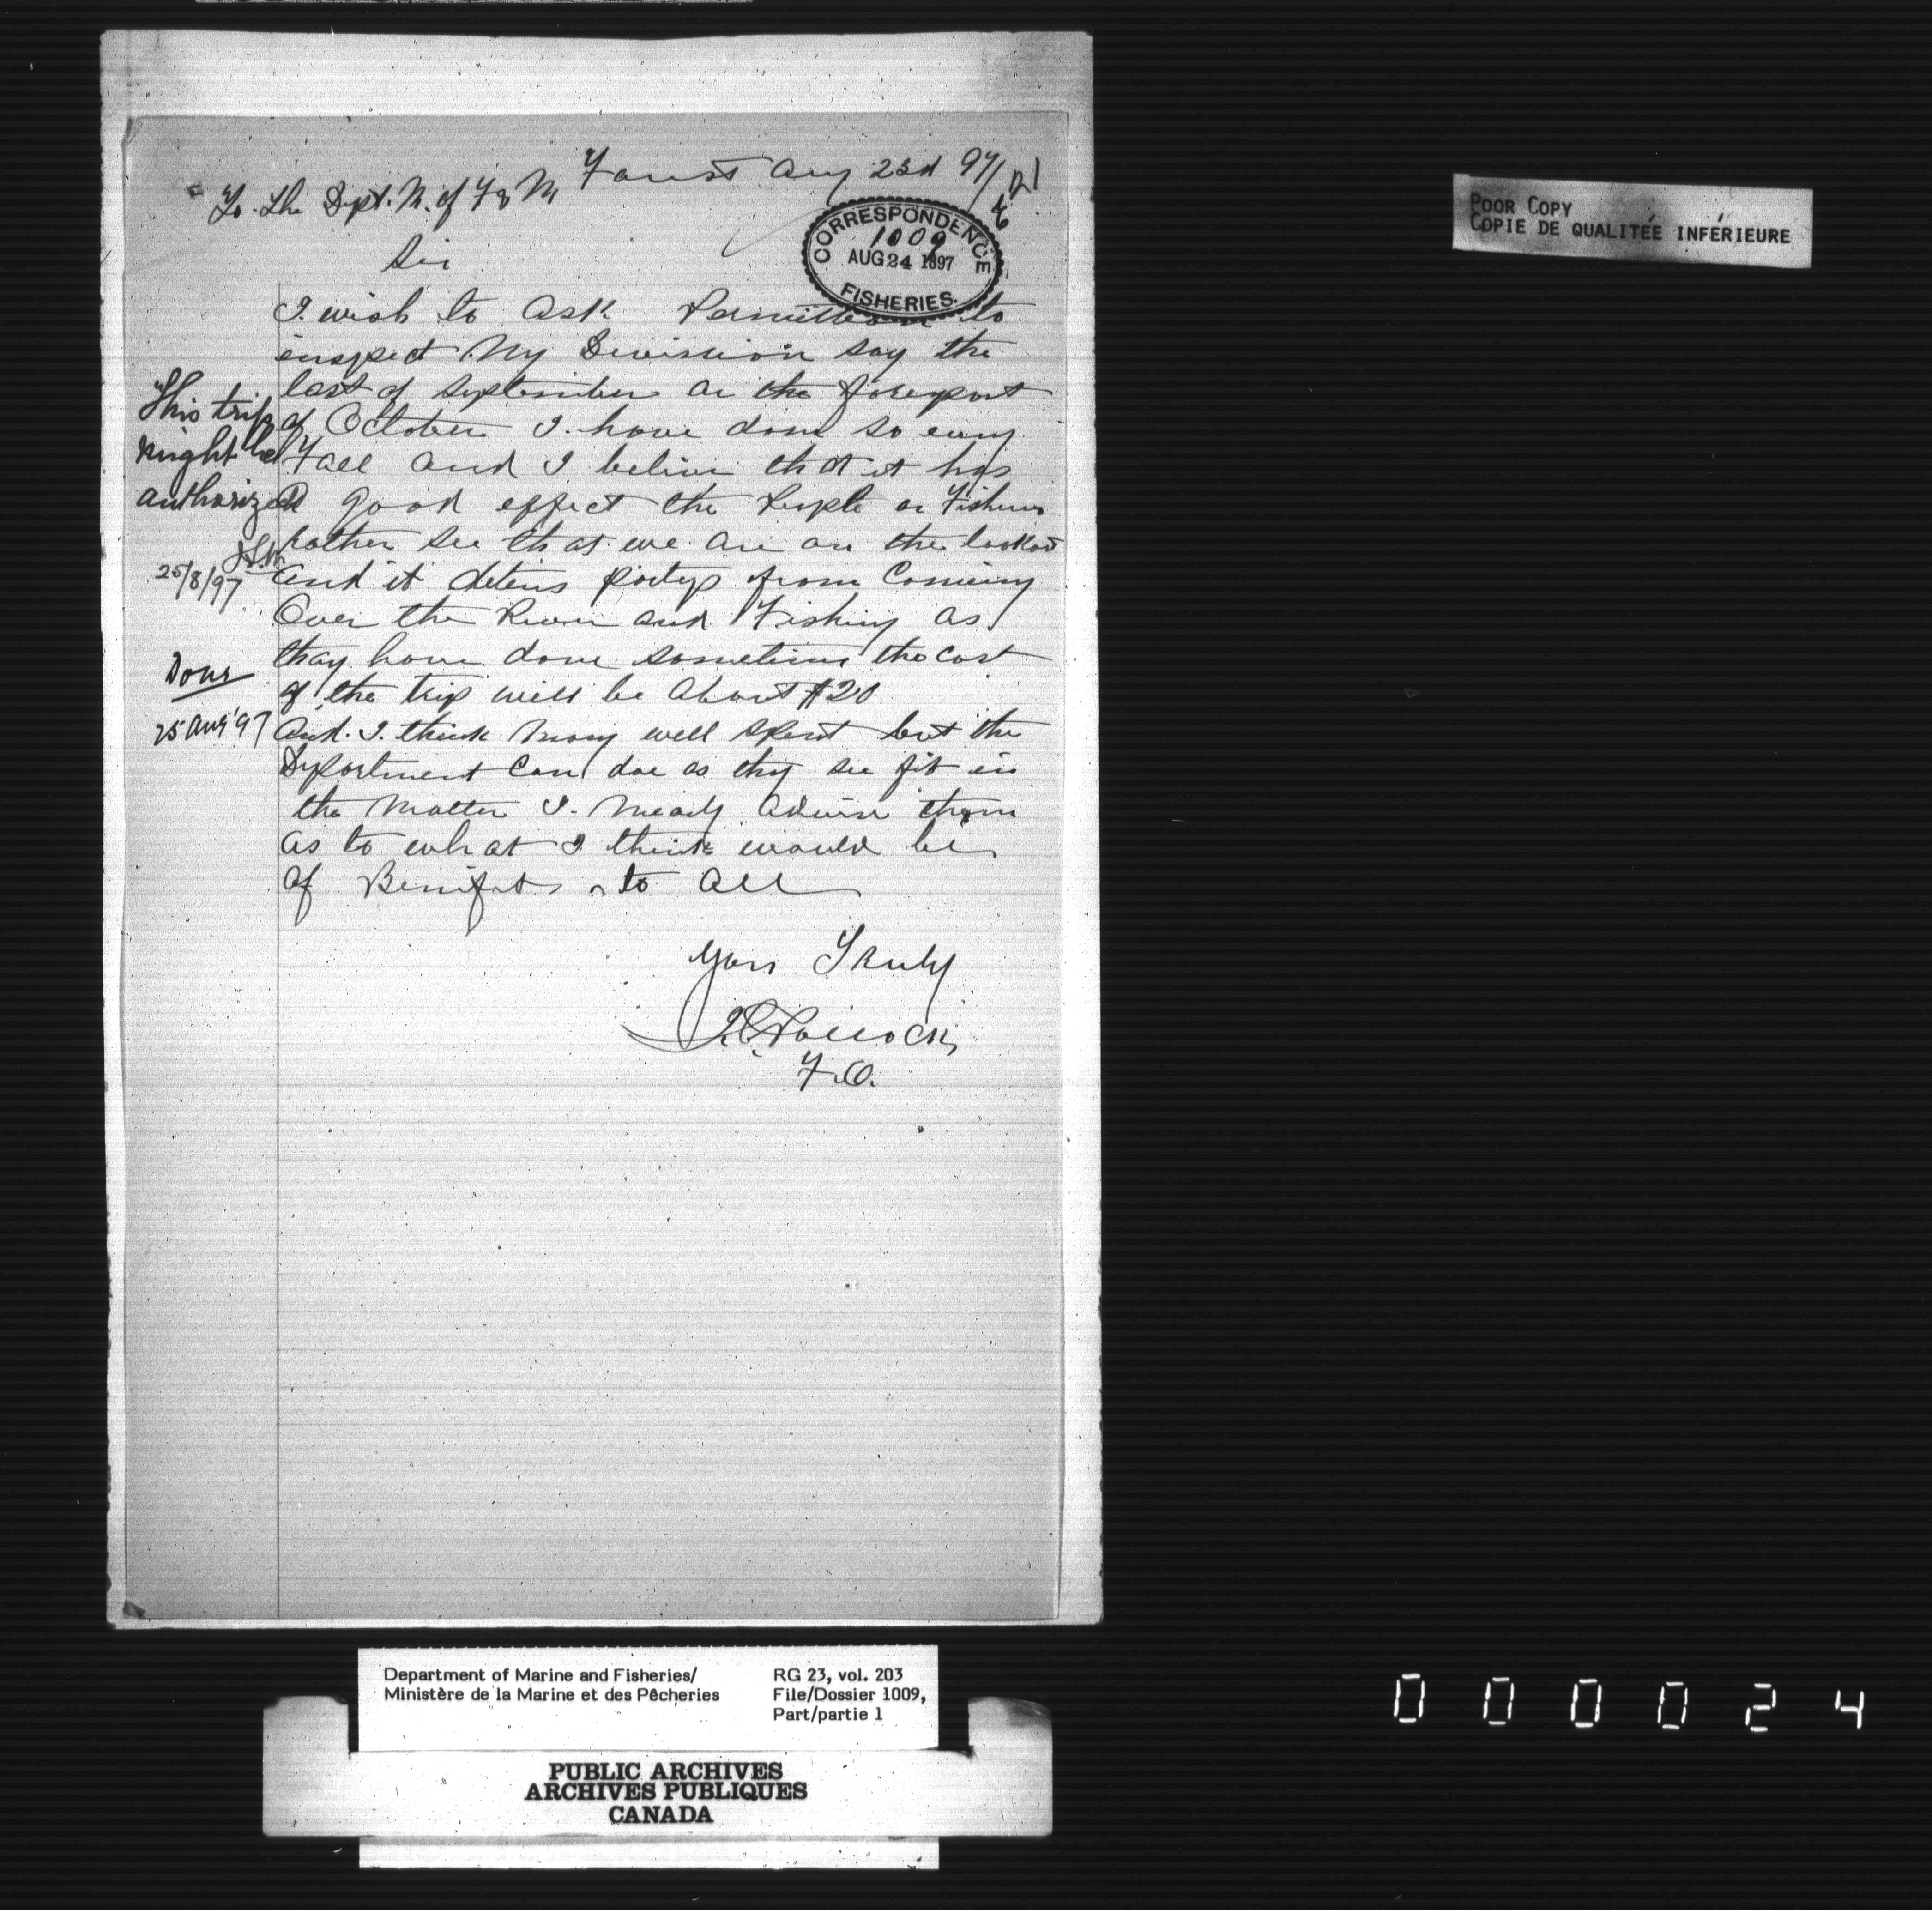 Forest Aug 23rd 97/
To the Dept. M. of F & M
Sir
CORRESPONDENCE
1009
AUG 24 1897
FISHERIES.
I wish to ask Permission to
inspect My Division say the
last of September or the forepart
of October I have done so every
Fall and I believe that it has
a good effect the People or Fishers
rather see that we are on the lookout
and it deters partys from Comeing
Over the River and Fishing as
thay have done sometimes the cost
of the trip will be about $20
And I think mony well spent but the
Department Can doe as they see fit in
the Matter I mearly advise them
as to what I think would be
of Benifit to all
Yours Truly
Pollock
F.O.
This trip
might be
authorized
25/8/97
Done
25 Aug '97
POOR COPY
COPIE DE QUALITÉE INFÉRIEURE
Department of Marine and Fisheries/
Ministère de la Marine et des Pêcheries
RG 23, vol. 203
File/Dossier 1009,
Part/partie 1
PUBLIC ARCHIVES
ARCHIVES PUBLIQUES
CANADA
000024